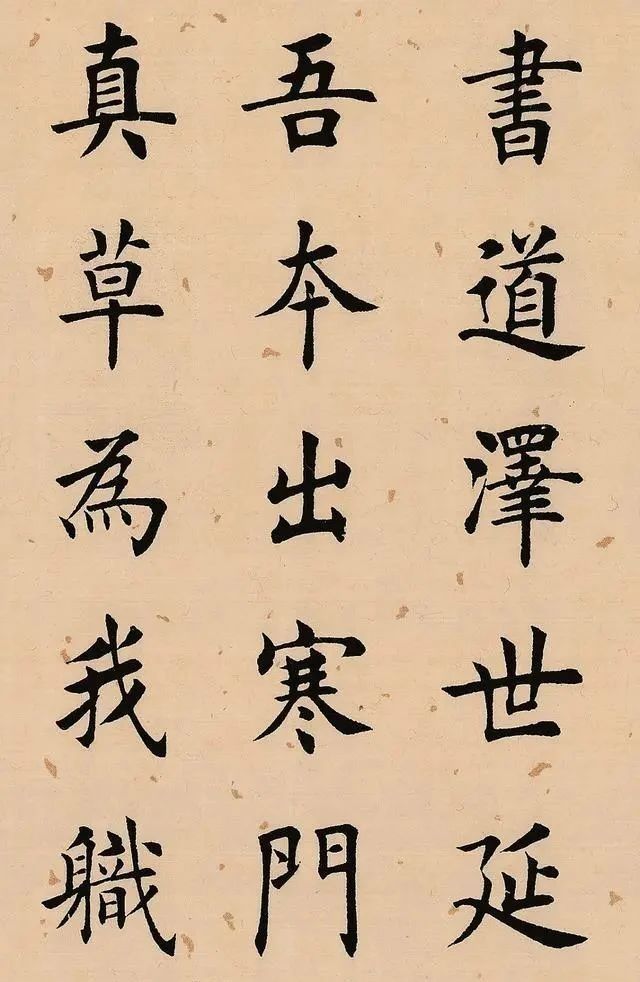 書道澤世延
吾本出寒門
真草為我軄